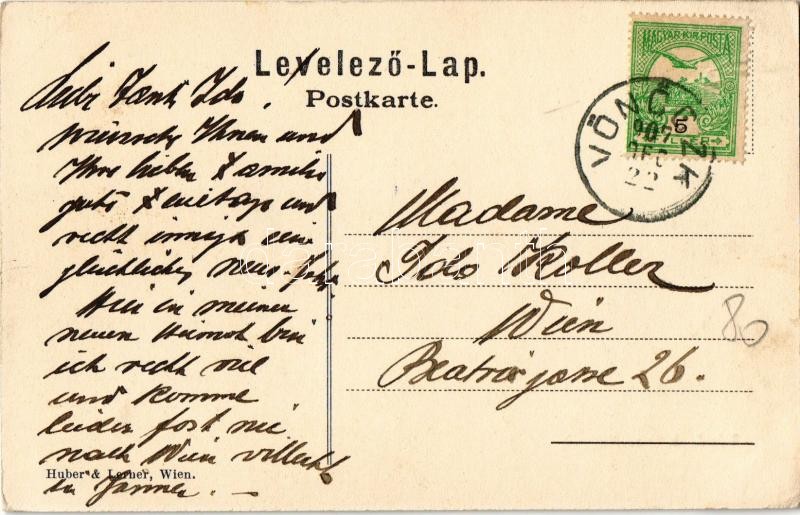 Levelező-Lap.
Postkarte.
MAGYAR·KIR·POSTA
5
VÖNÖCZK
907
DEC
22
Liebe Tante Ida,
wünsche Ihnen und
Ihre lieben Familie
gute Feiertage und
recht innigst ein
glückliches neues Jahr
Hier in meiner
neuen Heimat bin
ich recht viel
und komme
leider fast nie
nach Wien vielleicht
in Jänner. –
Madame
Ida Koller
Wien
Beatrixgasse 26.
80
Huber & Lerner, Wien.